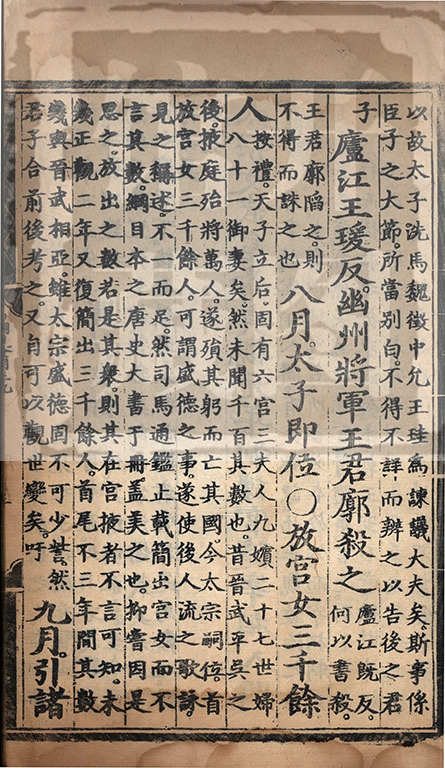 以故太子洗馬魏徵中允王珪爲諫議大夫矣。斯事係
臣子之大節。所當別白。不得不詳而辨之以告後之君
子 廬江王瑗反。幽州將軍王君廓殺之 廬江既反。
何以書殺。
王君廓陷之。則
不得而誅之也 八月。太子即位〇放宮女三千餘
人 按禮。天子立后。固有六宮三夫人九嬪二十七世婦
八十一御妻矣。然未聞千百其數也。昔晉武平吳之
後。掖庭殆將萬人。遂殞其躬而亡其國。今太宗嗣位。首
放宮女三千餘人。可謂盛德之事。遂使後人流之歌詠。
見之稱述。不一而足。然司馬通鑑止載簡出宮女而不
言其數。綱目本之唐史大書于冊。蓋美之也。抑嘗因是
思之。放出之數若是其衆。則其在宮掖者不言可知。未
幾正觀二年又復簡出三千餘人。首尾不三年間其數
幾與晉武相亞。雖太宗盛德固不可少訾。然
君子合前後考之。又自可以觀世變矣。吁 九月。引諸